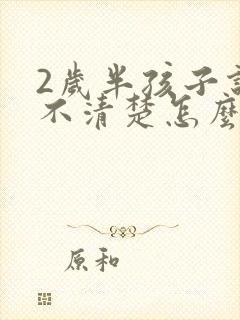 2歲半孩子說
不清楚怎麼
原和